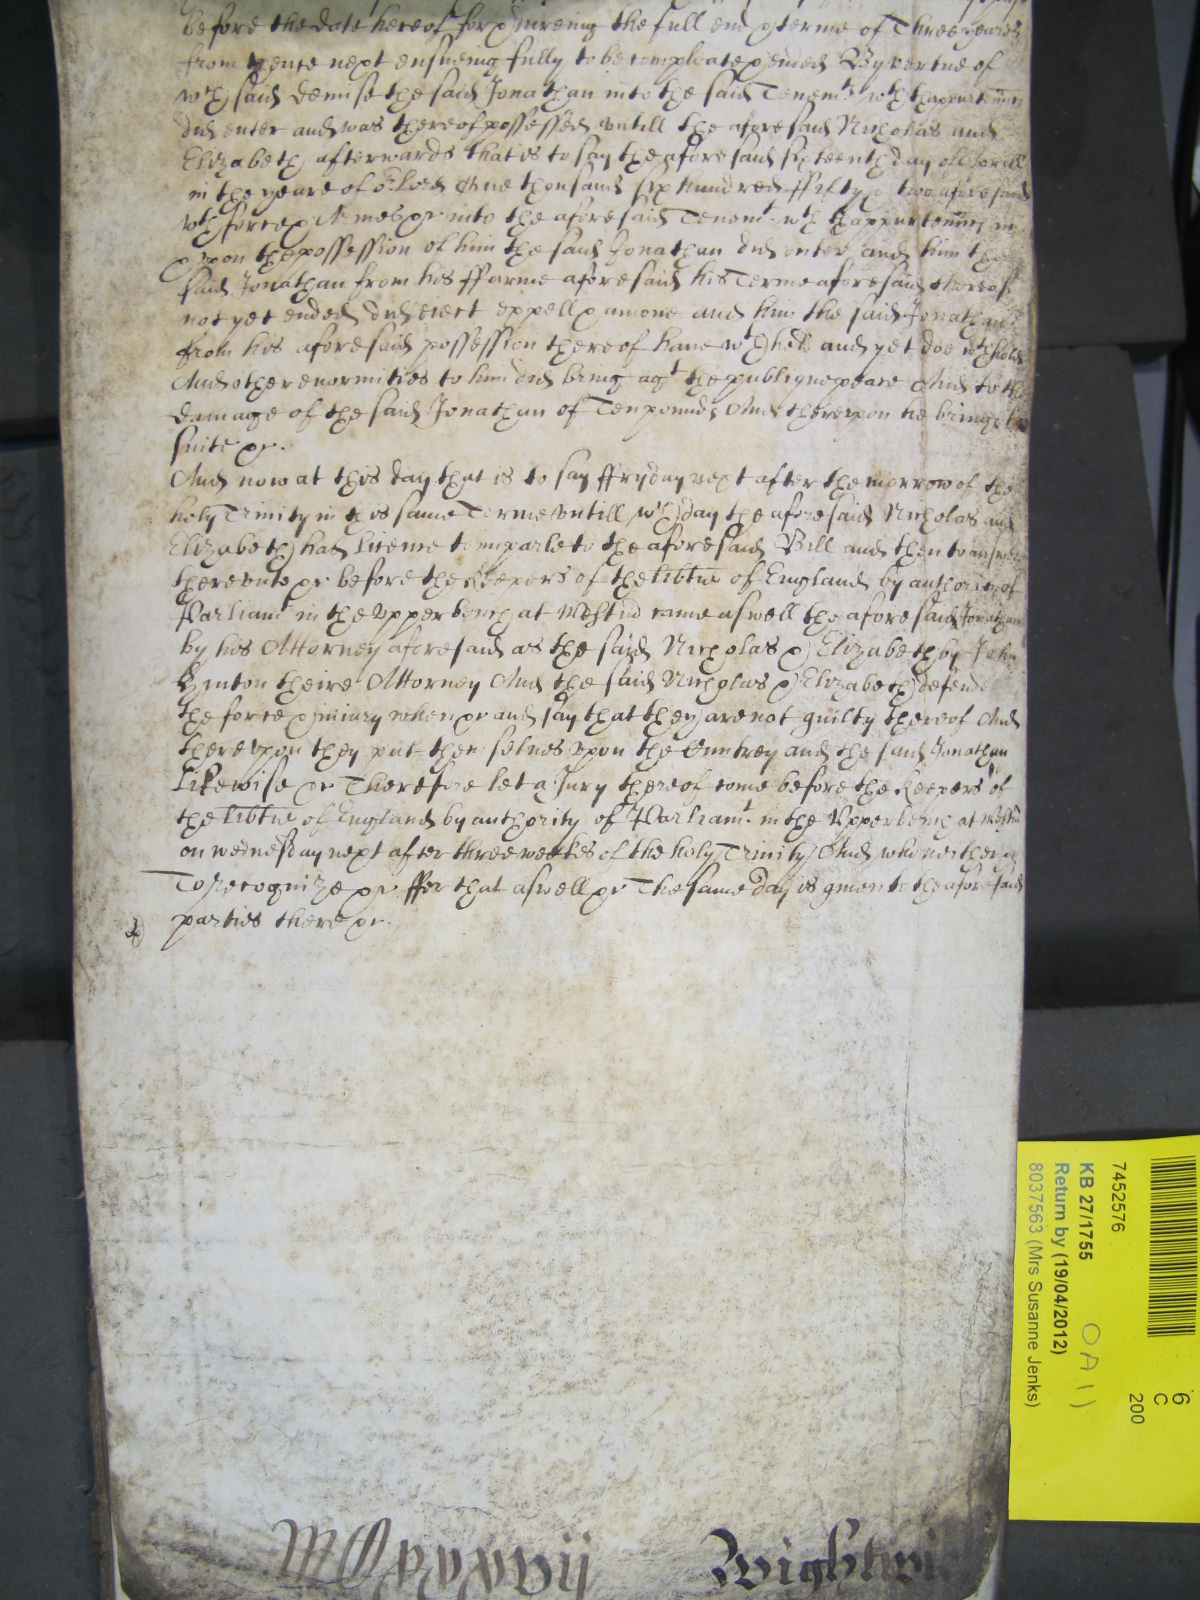 before the date hereof for & dureing the full end & terme of Three yeares
from thence next ensueing fully to be compleate & ended By vertue of
wch said demise the said Jonathan into the said Tenemts wth thappurtennces
did enter and was thereof possessed untill the aforesaid Nicholas and
Elizabeth afterwards that is to say the aforesaid sixteenth day of Aprill
in the yeare of or Lord One thousand six hundred ffifty & two aforesaid
wth force & Armes &c into the aforesaid Tenemts wth thappurtennces in
& upon the possession of him the said Jonathan did enter and him the
said Jonathan from his ffarme aforesaid his Terme aforesaid thereof
not yet ended did eiect expell & amove and him the said Jonathan
from his aforesaid possession thereof have wthheld and yet doe wthhold
And other enormities to him did bring agt the publique peace And to the
damage of the said Jonathan of Ten pounds And thereupon he brings
suite &c.
And now at this day that is to say ffryday next after the morrow of the
holy Trinity in this same Terme untill wch day the aforesaid Nicholas and
Elizabeth had licence to imparle to the aforesaid Bill and then to answere
thereunto &c before the Keepers of the libtie of England by authority of
Parliamt in the Upper bench at Westm came aswell the aforesaid Jonathan
by his Attorney aforesaid as the said Nicholas & Elizabeth by John
theire Attorney And the said Nicholas & Elizabeth defend
the force & iniury when &c and say that they are not guilty thereof And
thereupon they put them selves upon the Countrey and the said Jonathan
likewise &c Therefore let a Jury thereof come before the Keepers of
the libtie of England by authority of Parliamt in the Upper bench at Westm
on wednesday next after three weekes of the holy Trinity And who neither &c
To recognize &c ffor that aswell &c The same day is given to the aforesaid
parties there &c.
Wightwi
7452576
KB 27/1755
Return by (19/04/2012)
8037563 (Mrs Susanne Jenks)
6
C
200